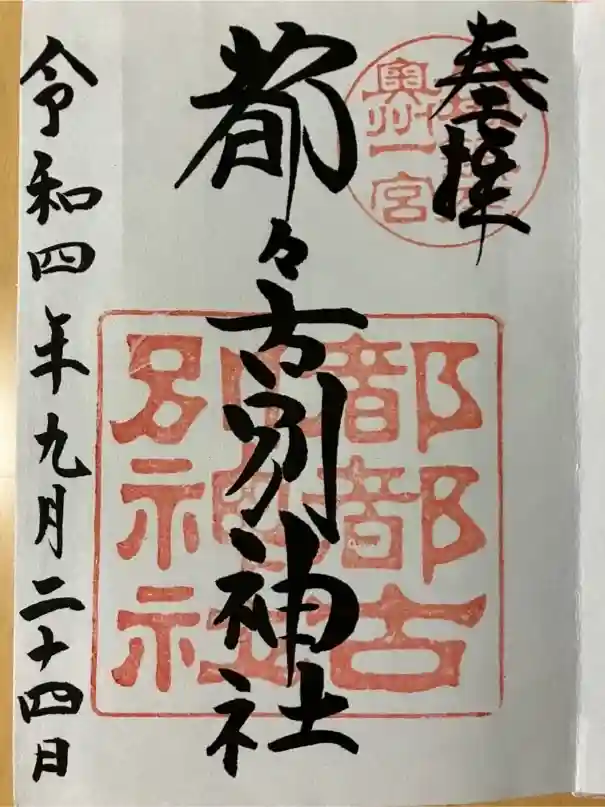 奉拝
奥州一宮
都々古別神社
都都古
別神社
令和四年九月二十四日